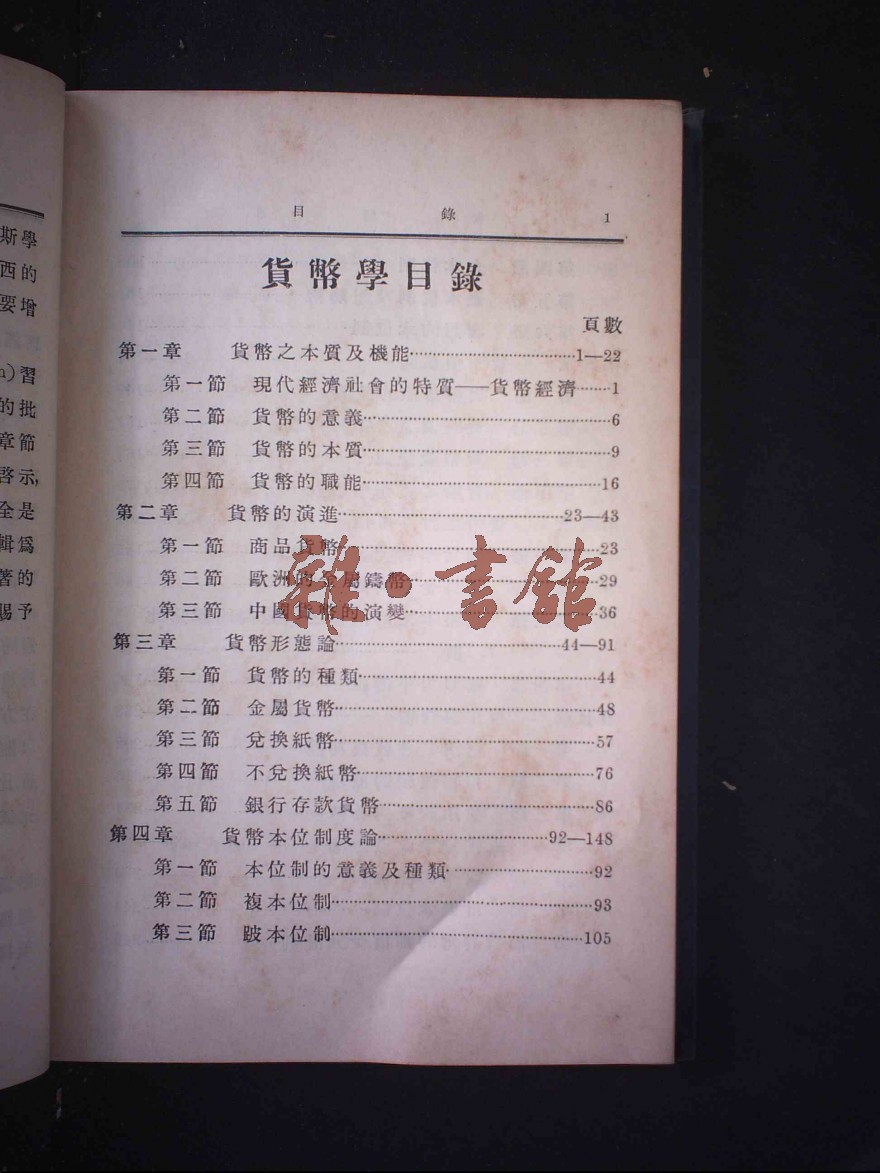 斯學
西的
要增
)習
的批
章節
啓示,
全是
輯爲
著的
賜予
目錄 1
貨幣學目錄
頁數
第一章 貨幣之本質及機能……………………………1—22
第一節 現代經濟社會的特質——貨幣經濟……1
第二節 貨幣的意義……………………………………6
第三節 貨幣的本質……………………………………9
第四節 貨幣的職能……………………………………16
第二章 貨幣的演進……………………………………23—43
第一節 商品貨幣……………………………………23
第二節 歐洲的金屬鑄幣……………………………29
第三節 中國貨幣的演變……………………………36
第三章 貨幣形態論……………………………………44—91
第一節 貨幣的種類……………………………………44
第二節 金屬貨幣……………………………………48
第三節 兌換紙幣……………………………………57
第四節 不兌換紙幣……………………………………76
第五節 銀行存款貨幣…………………………………86
第四章 貨幣本位制度論………………………………92—148
第一節 本位制的意義及種類…………………………92
第二節 複本位制……………………………………93
第三節 跛本位制……………………………………105
雜·書館